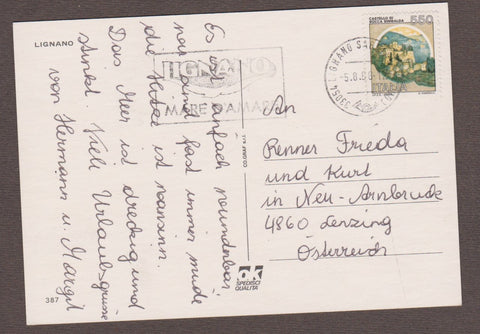 LIGNANO
Es ist einfach wunderbar,
nur sind fast immer müde
die Hitze ist wansinn.
Das Meer ist dreckig und
stinkt. Viele Urlaubsgrüsse
von Hermann u. Margit
387
LIGNANO
MARE D'AMARE
CASTELLO DI
ROCCA SINIBALDA
550
ITALIA
An
Renner Frieda
und Kurt
in Neu-Arnbruck
4860 Lenzing
Österreich
ok
SPEDISCI
QUALITÀ